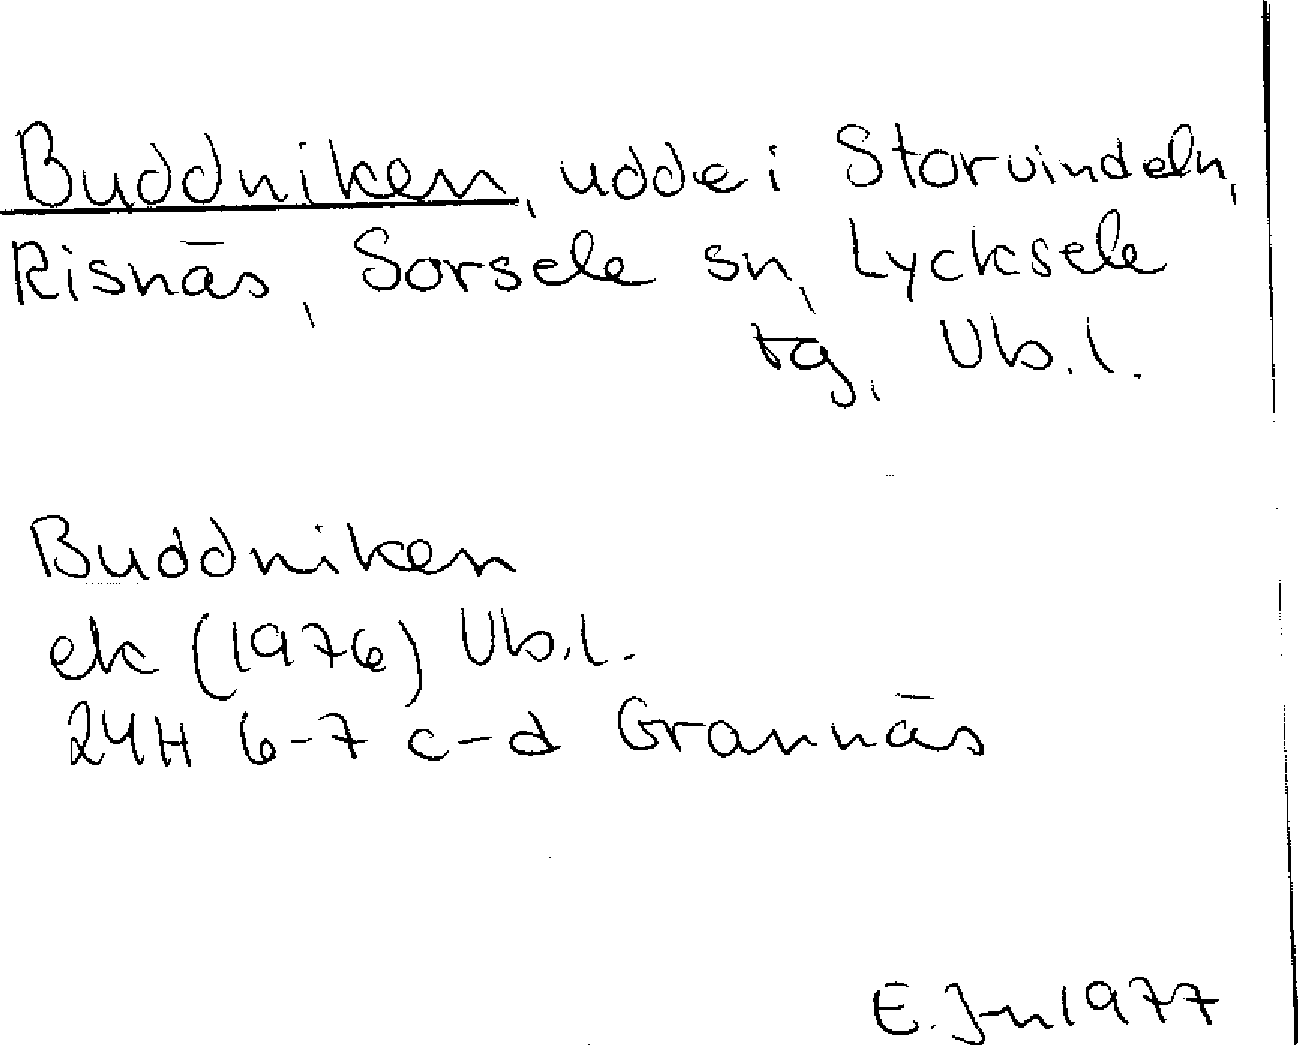 Buddniken, udde i Storvindeln,
Risnäs, Sorsele sn, Lycksele
tg, Vb. l.
Buddniken
ek (1976) Vb. l.
24H 6-7 c-d Grannäs
E. Jn 1977